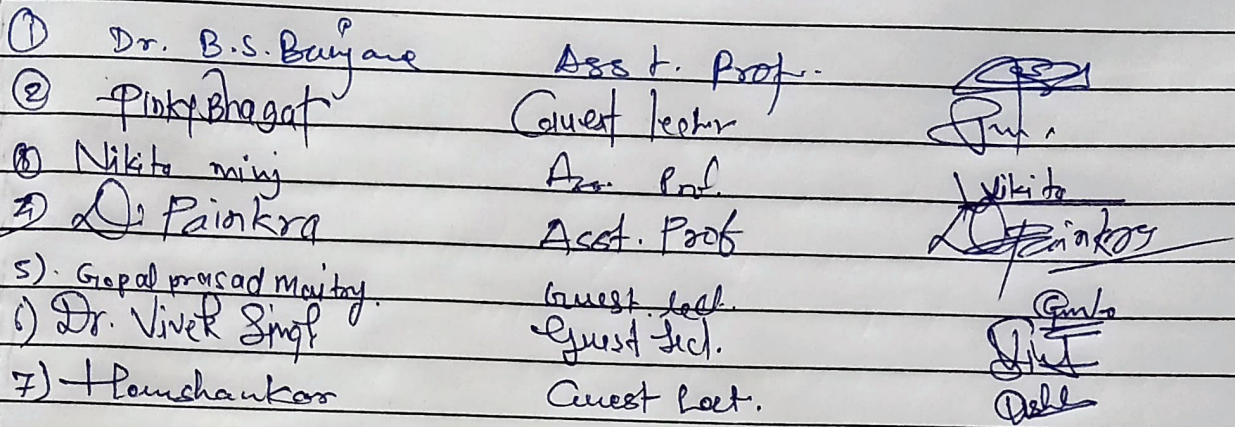 ① Dr. B.S. Asst. Prof.
② Pinky Bhagat Guest
③ Nikita minj Ass. Prof. Nikita
4) D. Painkra Asst. Prof D Painkra
5). Gopal prasad Guest. lect.
6) Dr. Vivek Singh Guest Lect.
7) Hamshankar Guest Lect.